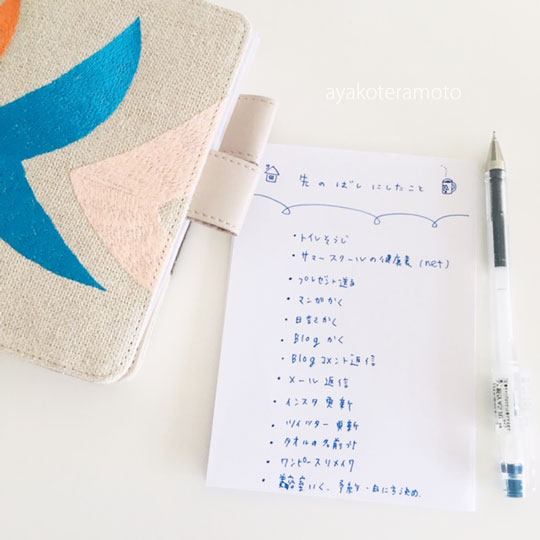 ayakoteramoto
先のばしにしたこと
・トイレそうじ
・サマースクールの健康表 (net)
・プレゼント送る
・マンガかく
・日書かく
・Blog かく
・Blog コメント返信
・メール返信
・インスタ更新
・ツイッター更新
・タオルの名前付
・ワンピースリメイク
・美容室いく、予約・日にち決め.